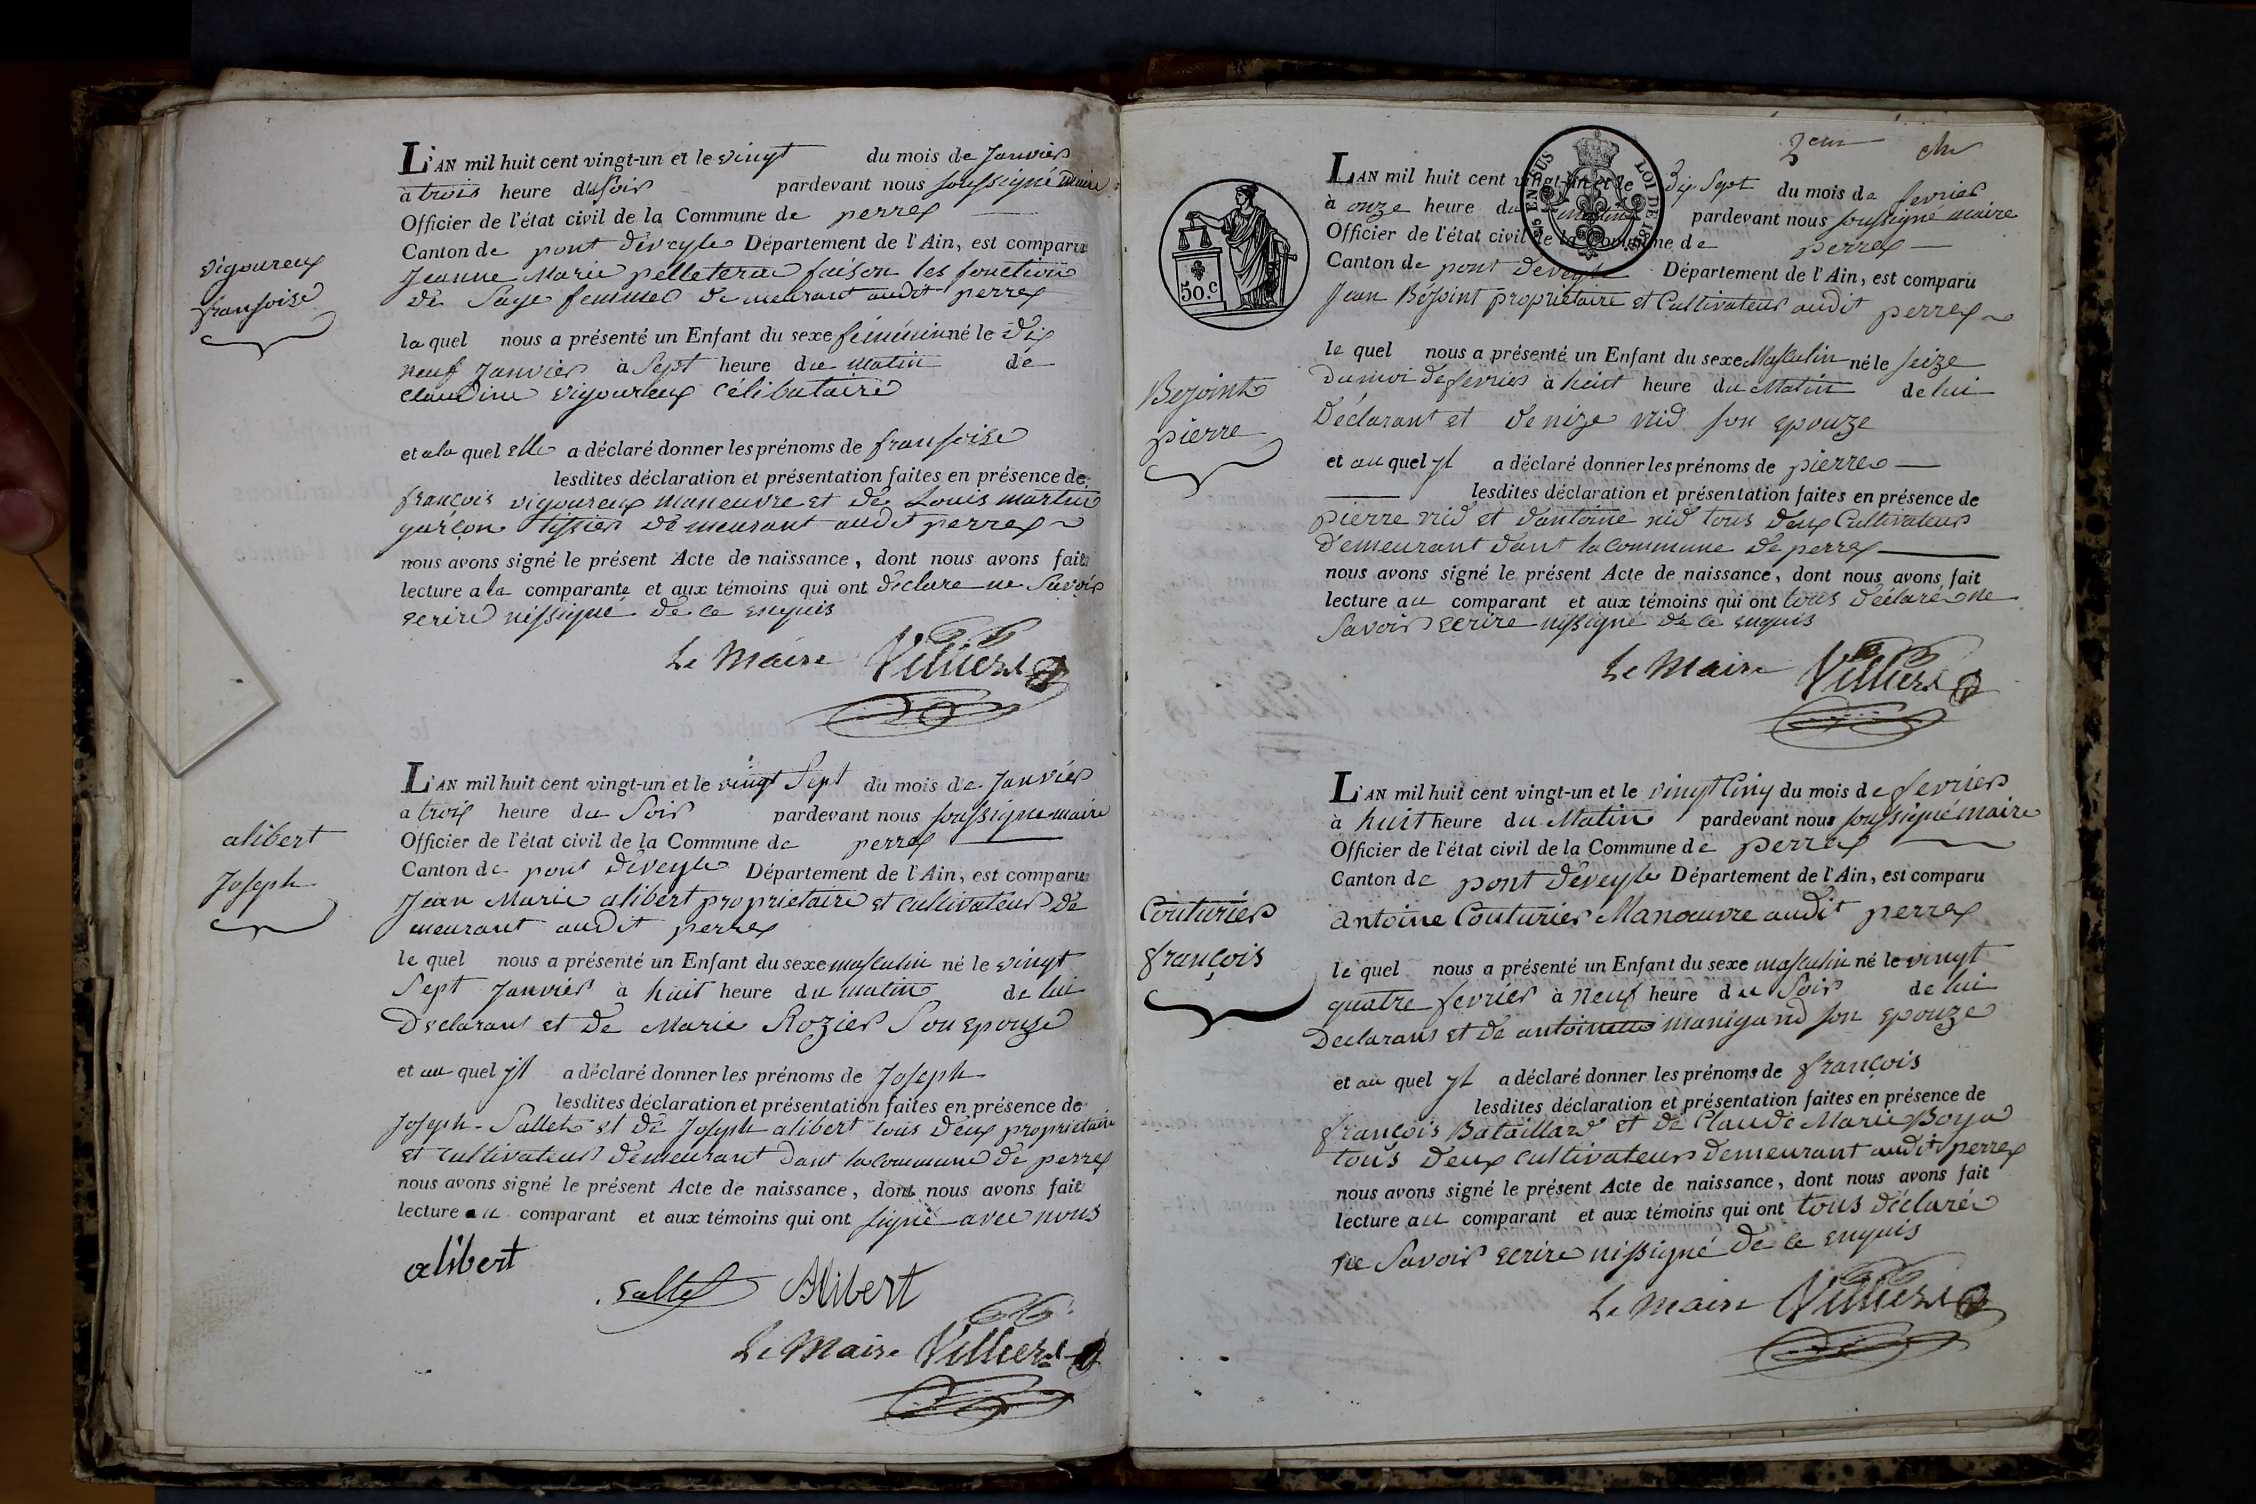 vigoureux
fransoise
L'AN mil huit cent vingt-un et le vingt du mois de Janvier
à trois heure du Soir pardevant nous soussigné maire
Officier de l'état civil de la Commune de perrex
Canton de pont deveyle Département de l'Ain, est comparu
Jeanne Marie pelletera faison les fonction
de Sage femme demeurant audit perrex
la quel nous a présenté un Enfant du sexe féminin né le dix
neuf Janvier à Sept heure du matin de
claudine vigoureux célibataire
et a la quel elle a déclaré donner les prénoms de fransoise
lesdites déclaration et présentation faites en présence de
françois vigoureux maneuvre et de Louis martin
garçon tissier demeurant audit perrex
nous avons signé le présent Acte de naissance, dont nous avons fait
lecture a la comparante et aux témoins qui ont déclare ne Savoir
ecrire ni signé de ce enquis
Le Maire Villiers
alibert
Joseph
L'AN mil huit cent vingt-un et le vingt Sept du mois de Janvier
a trois heure du Soir pardevant nous soussigné maire
Officier de l'état civil de la Commune de perrex
Canton de pont deveyle Département de l'Ain, est comparu
Jean Marie alibert proprietaire et cultivateur de
meurant audit perrex
le quel nous a présenté un Enfant du sexe masculin né le vingt
Sept Janvier à huit heure du matin de lui
Declarant et de Marie Rozier Son epouze
et au quel yl a déclaré donner les prénoms de Joseph
lesdites déclaration et présentation faites en présence de
Joseph Sallet et de Joseph alibert tous deux proprietaire
et cultivateur demeurant dant la commune de perrex
nous avons signé le présent Acte de naissance, dont nous avons fait
lecture au comparant et aux témoins qui ont signé avec nous
alibert
Sallet Alibert
Le Maire Villiers
2em
50.c
EN SUS LOI DE
Bezoint
pierre
L'AN mil huit cent vingt-un et le dix Sept du mois de fevrier
à onze heure du matin pardevant nous soussigné maire
Officier de l'état civil de la Commune de perrex
Canton de pont deveyle Département de l'Ain, est comparu
Jean Bezoint proprietaire et Cultivateur audit perrex
le quel nous a présenté un Enfant du sexe Masculin né le seize
du moi de fevrier à huit heure du Matin de lui
Déclarant et denize nid son epouze
et au quel yl a déclaré donner les prénoms de pierre
lesdites déclaration et présentation faites en présence de
pierre nid et d'antoine nid tous deux Cultivateur
demeurant dant la commune de perrex
nous avons signé le présent Acte de naissance, dont nous avons fait
lecture au comparant et aux témoins qui ont tous déclaré ne
Savoir ecrire ni signé de ce enquis
Le Maire Villiers
Couturier
françois
L'AN mil huit cent vingt-un et le vingt Cinq du mois de fevrier
à huit heure du Matin pardevant nous soussigné maire
Officier de l'état civil de la Commune de perrex
Canton de pont deveyle Département de l'Ain, est comparu
antoine Couturier Manœuvre audit perrex
le quel nous a présenté un Enfant du sexe masculin né le vingt
quatre fevrier à neuf heure du Soir de lui
Declarans et de antoinette manigand son epouze
et au quel yl a déclaré donner les prénoms de françois
lesdites déclaration et présentation faites en présence de
françois Bataillard et de Claude Marie Boya
tous deux cultivateur demeurant audit perrex
nous avons signé le présent Acte de naissance, dont nous avons fait
lecture au comparant et aux témoins qui ont tous déclaré
ne Savoir ecrire ni signé de ce enquis
Le Maire Villiers